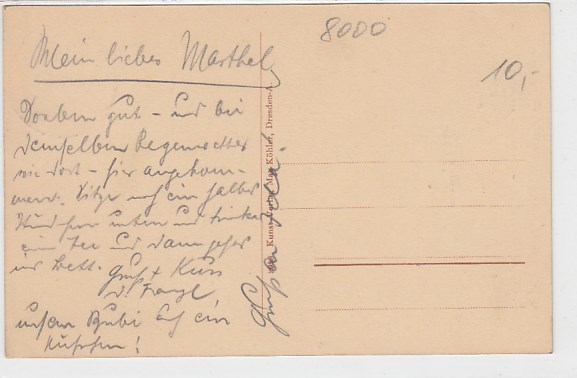 8000
10,-
Mein liebes Marthel,
Soeben gut – und bei
demselben Regenwetter
wie dort – hier angekom-
men. Sitze auf ein halbes
Stündchen unten und trinke
ein Tee und dann gehts
ins Bett. Gruß + Kuss
d. Franzl
unsern Bubi auch ein
Küsschen!
Gruß an
Kunst-Verlag Max Köhler, Dresden-A.